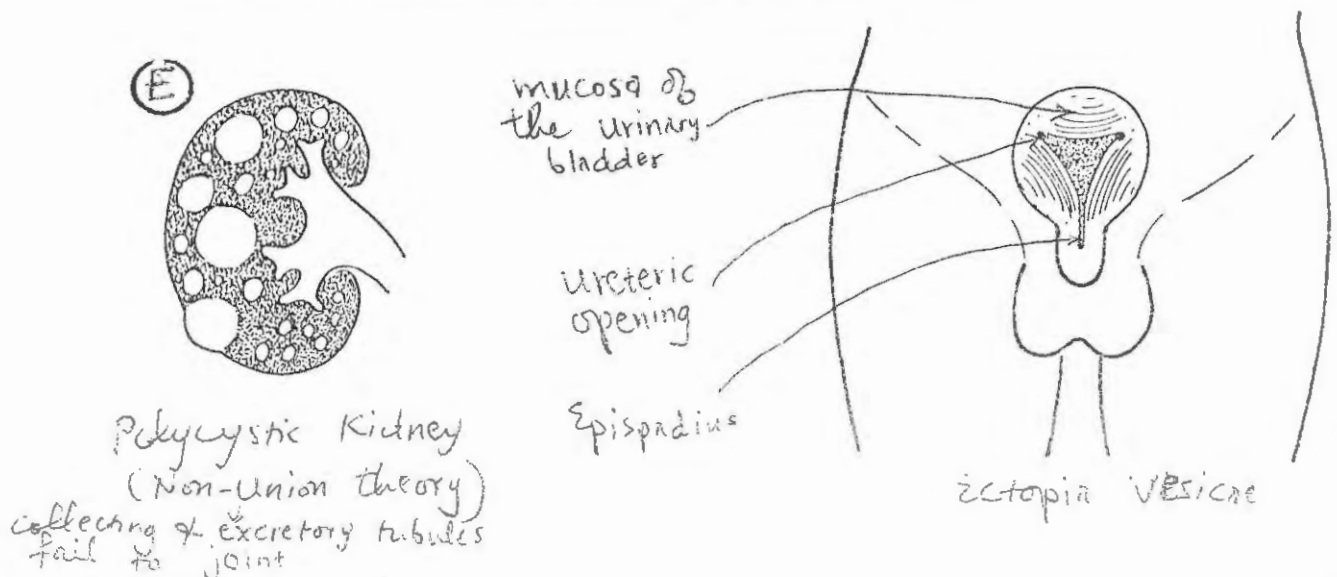 E
Polycystic Kidney
(Non-Union theory)
collecting & excretory tubules
fail to joint
mucosa of
the urinary
bladder
ureteric
opening
Epispadius
Ectopia vesicae